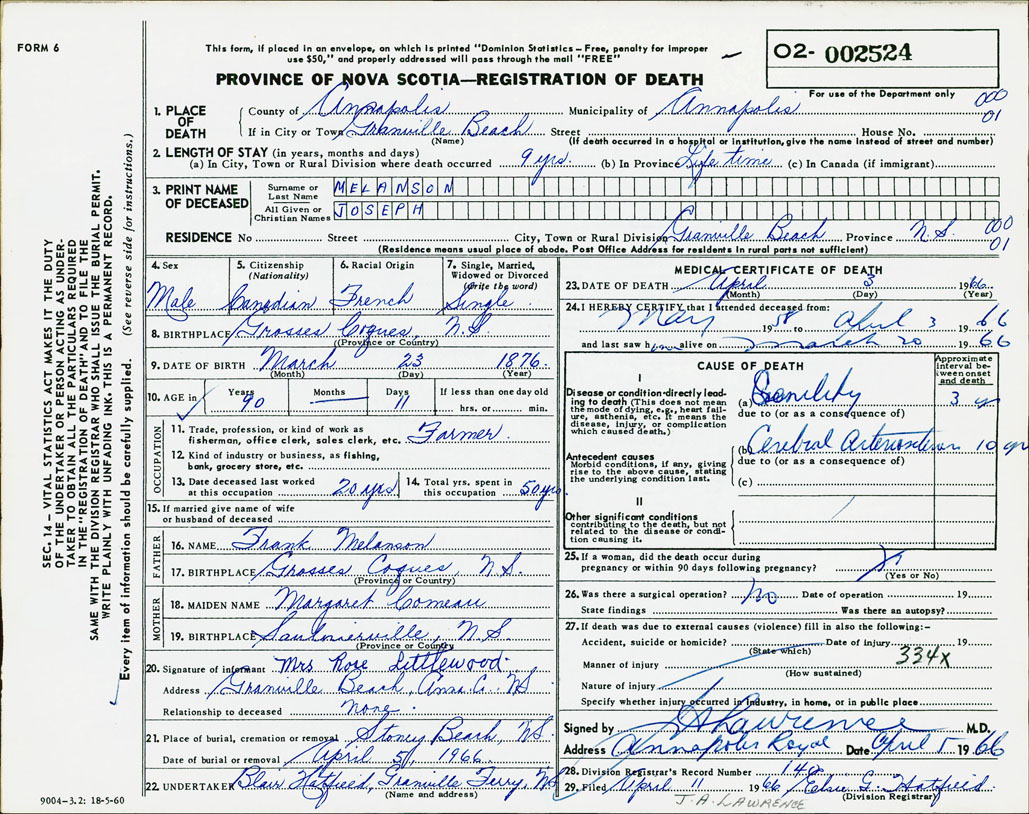 FORM 6
This form, if placed in an envelope, on which is printed "Dominion Statistics – Free, penalty for improper
use $50," and properly addressed will pass through the mail "FREE"
O2- 002524
PROVINCE OF NOVA SCOTIA—REGISTRATION OF DEATH
For use of the Department only
1. PLACE OF DEATH County of Annapolis Municipality of Annapolis 000
If in City or Town Granville Beach Street House No. 01
(Name) (If death occurred in a hospital or institution, give the name instead of street and number)
2. LENGTH OF STAY (in years, months and days)
(a) In City, Town or Rural Division where death occurred 9 yrs. (b) In Province Life time (c) In Canada (if immigrant)
3. PRINT NAME OF DECEASED Surname or Last Name MELANSON
All Given or Christian Names JOSEPH
RESIDENCE No Street City, Town or Rural Division Granville Beach Province N.S. 000 01
(Residence means usual place of abode. Post Office Address for residents in rural parts not sufficient)
4. Sex 5. Citizenship (Nationality) 6. Racial Origin 7. Single, Married, Widowed or Divorced (Write the word)
Male Canadian French Single
8. BIRTHPLACE Grosses Coques, N.S
(Province or Country)
9. DATE OF BIRTH March 23 1876.
(Month) (Day) (Year)
10. AGE in Years 90 Months — Days 11 If less than one day old
hrs. or min.
OCCUPATION
11. Trade, profession, or kind of work as
fisherman, office clerk, sales clerk, etc. Farmer.
12. Kind of industry or business, as fishing,
bank, grocery store, etc.
13. Date deceased last worked at this occupation 20 yrs 14. Total yrs. spent in this occupation 50 yrs
15. If married give name of wife
or husband of deceased
FATHER
16. NAME Frank Melanson
17. BIRTHPLACE Grosses Coques, N.S.
(Province or Country)
MOTHER
18. MAIDEN NAME Margaret Comeau
19. BIRTHPLACE Saulnierville, N.S.
(Province or Country)
20. Signature of informant Mrs Rose Littlewood.
Address Granville Beach, Anna. Co. NS
Relationship to deceased none.
21. Place of burial, cremation or removal Stoney Beach, NS.
Date of burial or removal April 5, 1966
22. UNDERTAKER Blair Hatfield, Granville Ferry, NS
(Name and address)
MEDICAL CERTIFICATE OF DEATH
23. DATE OF DEATH April 3 1966.
(Month) (Day) (Year)
24. I HEREBY CERTIFY that I attended deceased from:
May 1958 to April 3 1966
and last saw him alive on March 20 1966
CAUSE OF DEATH
Approximate interval between onset and death
I
Disease or condition directly leading to death (This does not mean the mode of dying, e.g., heart failure, asthenia, etc. It means the disease, injury, or complication which caused death.)
(a) Senility 3 yr
due to (or as a consequence of)
Antecedent causes
Morbid conditions, if any, giving rise to the above cause, stating the underlying condition last.
(b) Cerebral 10 yr
due to (or as a consequence of)
(c)
II
Other significant conditions
contributing to the death, but not related to the disease or condition causing it.
25. If a woman, did the death occur during
pregnancy or within 90 days following pregnancy?
(Yes or No)
26. Was there a surgical operation? No Date of operation 19
State findings Was there an autopsy?
27. If death was due to external causes (violence) fill in also the following:-
Accident, suicide or homicide? Date of injury 19
(State which)
Manner of injury 334X
(How sustained)
Nature of injury
Specify whether injury occurred in industry, in home, or in public place
Signed by Lawrence M.D.
Address Annapolis Royal Date April 5 1966
28. Division Registrar's Record Number 140
29. Filed April 11 1966 Elsie G. Hatfield
(Division Registrar)
J. A. LAWRENCE
SEC. 14 – VITAL STATISTICS ACT MAKES IT THE DUTY
OF THE UNDERTAKER OR PERSON ACTING AS UNDER-
TAKER TO OBTAIN ALL THE PARTICULARS REQUIRED
IN THE "REGISTRATION OF DEATH" AND TO FILE THE
SAME WITH THE DIVISION REGISTRAR WHO SHALL ISSUE THE BURIAL PERMIT.
WRITE PLAINLY WITH UNFADING INK. THIS IS A PERMANENT RECORD.
Every item of information should be carefully supplied. (See reverse side for instructions.)
9004-3.2: 18-5-60